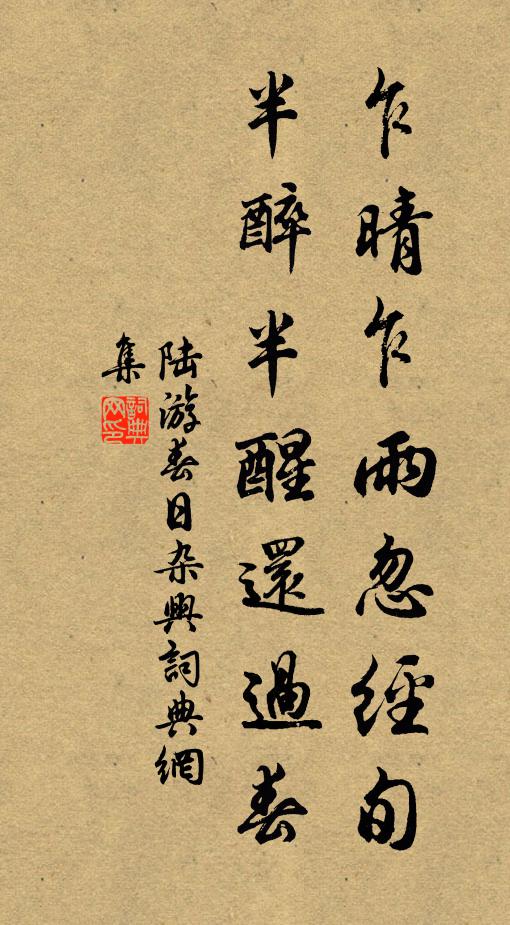 乍晴乍雨忽經旬
半醉半醒還過春
陸游春日杂興詞典網
集
詞典
网印